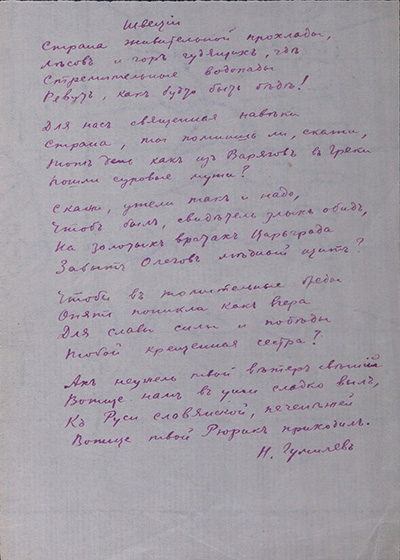 Швеціи
Страна живительной прохлады,
Лѣсовъ и горъ гудящихъ, гдѣ
Стремительные водопады
Ревутъ, какъ будто быть бѣдѣ!
Для насъ священная навѣки
Страна, ты помнишь ли, скажи,
Тотъ день какъ изъ Варяговъ въ Греки
Пошли суровые мужи?
Скажи, ужели такъ и надо,
Чтобъ былъ, свидѣтель злыхъ обидъ,
На золотыхъ вратахъ Царьграда
Забытъ Олеговъ мѣдный щитъ?
Чтобы въ томительные бреды
Опять поникла какъ вчера
Для славы силы и побѣды
Тобой крещенная сестра?
Ахъ неужель твой вѣтеръ свѣжій
Вотще намъ въ уши сладко вылъ,
Къ Руси славянской, печенѣжьей
Вотще твой Рюрикъ приходилъ.
Н. Гумилевъ